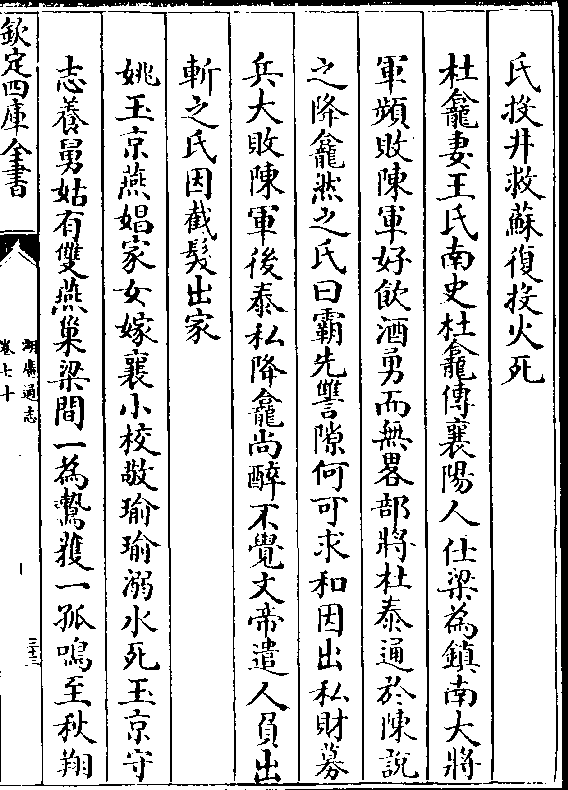 氏投井救蘇復投火死
杜龕妻王氏南史杜龕傳襄陽人仕梁為鎮南大將
軍頻敗陳軍好飲酒勇而無畧部將杜泰通於陳說
之降龕然之氏曰霸先讐隙何可求和因出私財募
兵大敗陳軍後泰私降龕尚醉不覺文帝遣人負出
斬之氏因截髮出家
姚玉京燕娼家女嫁襄小校敬瑜瑜溺水死玉京守
志養舅姑有雙燕巢梁間一為鷙獲一孤鳴至秋翔
欽定四庫全書
湖廣通志
卷七十
三十三